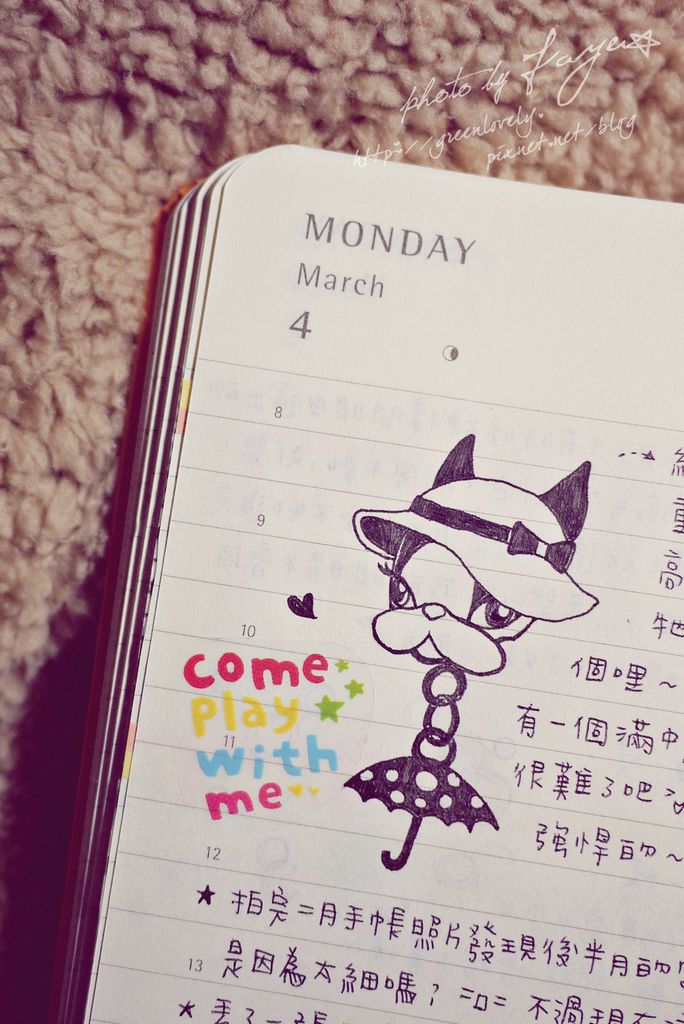 photo by Faye
http://greenlovely.
pixnet.net/blog
MONDAY
March
4
8
9
高
牠
10
個哩~
come
play
有一個滿中
11
with
很難了吧
me
強悍的~
12
★ 拍完二月手帳照片發現後半月的
13
是因為太細嗎? =口= 不過現在
★ 丟了一張